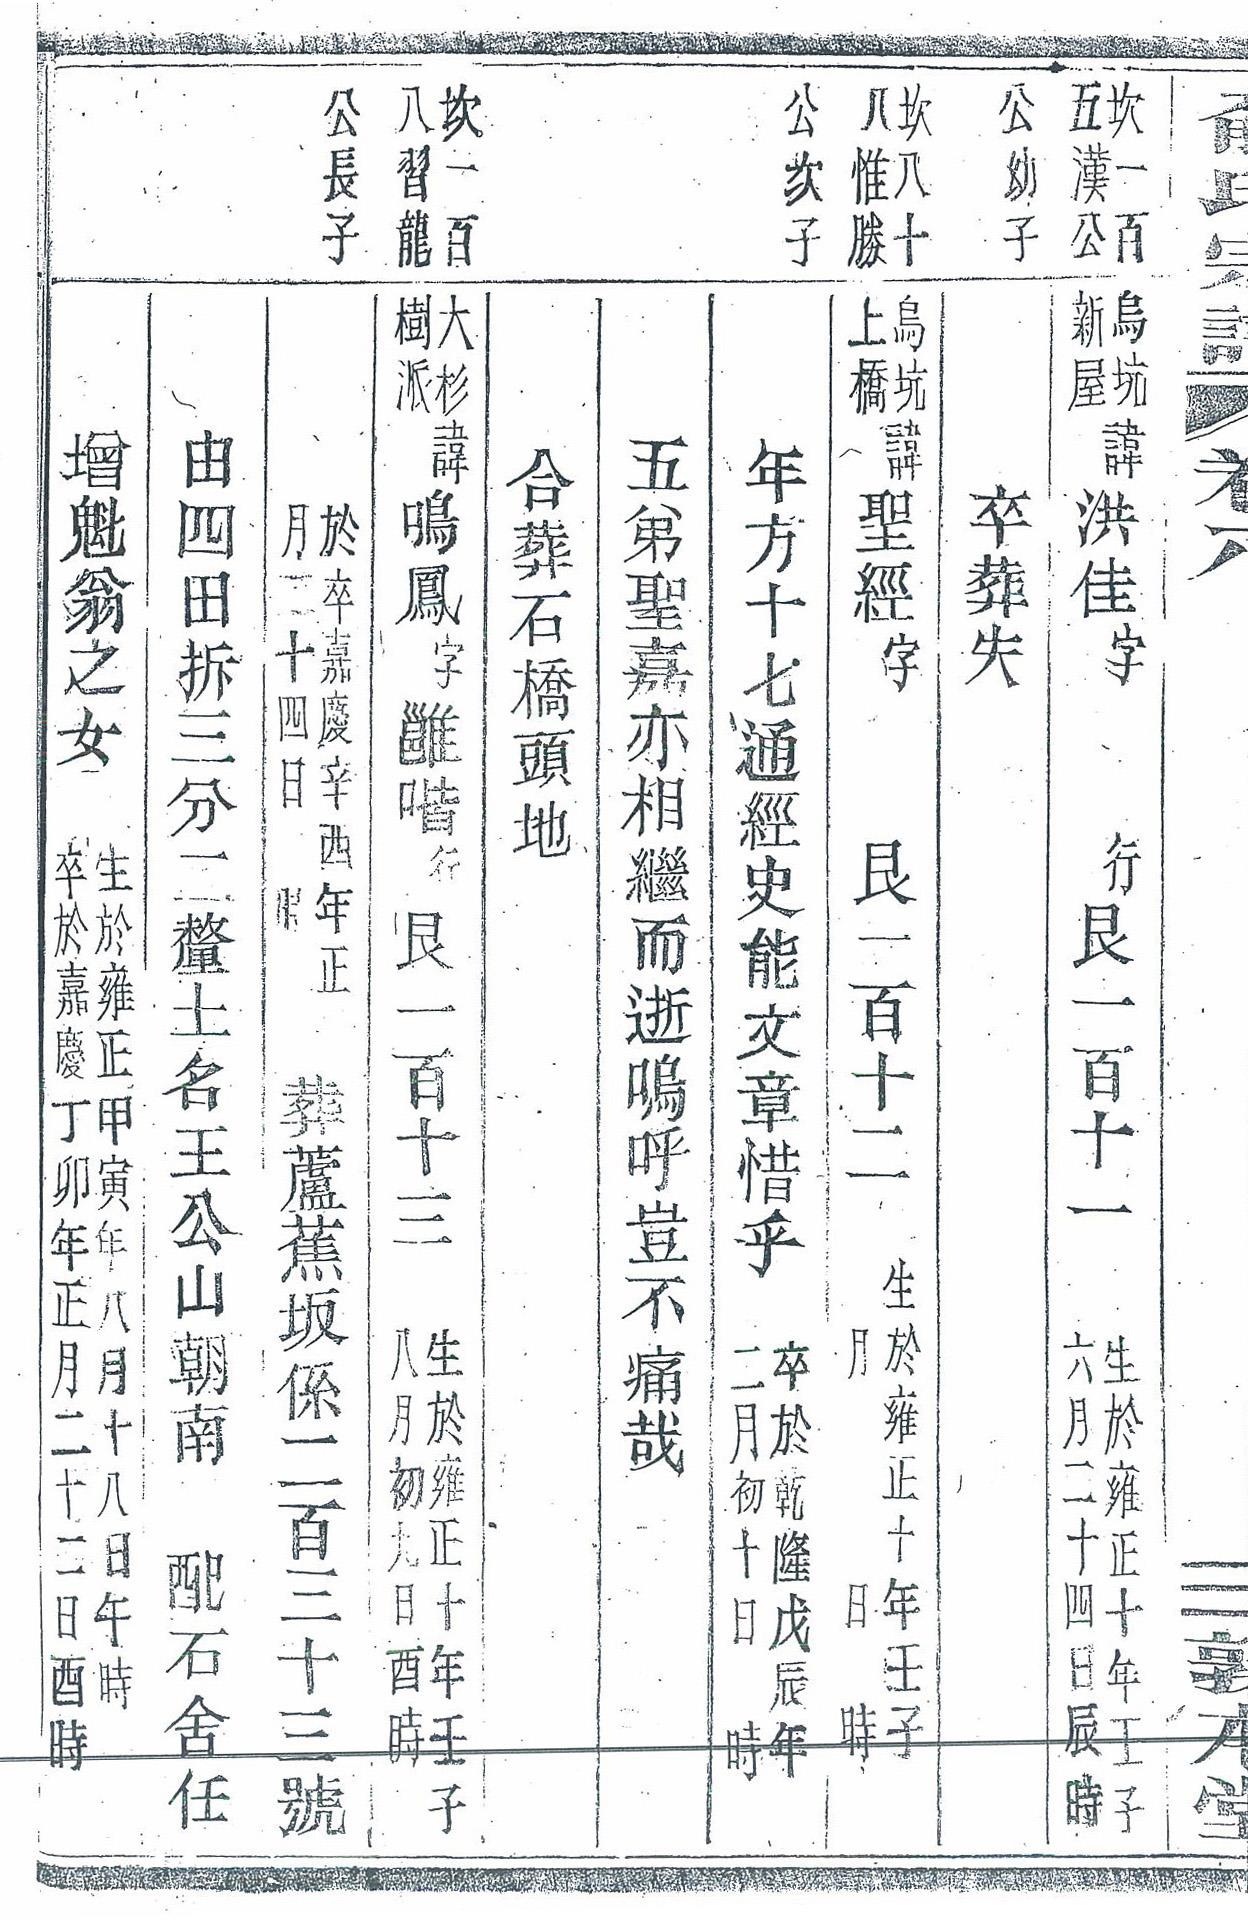 氏宗譜 卷六 敦本堂
坎一百
五漢公
公幼子
坎八十
八惟勝
公次子
坎一百
八習龍
公長子
烏坑
新屋
諱洪佳字 行艮一百十一
生於雍正十年壬子
六月二十四日辰時
卒葬失
烏坑
上橋
諱聖經字 艮一百十二
生於雍正十年壬子
月 日 時
年方十七通經史能文章惜乎
卒於乾隆戊辰年
二月初十日 時
五弟聖嘉亦相繼而逝嗚呼豈不痛哉
合葬石橋頭地
大杉
樹派
諱鳴鳳字雝喈行艮一百十三
生於雍正十年壬子
八月初九日酉時
於卒嘉慶辛酉年正
月二十四日 時
葬蘆蕉坂係二百三十三號
由四田拆三分二釐土名王公山朝南 配石舍任
增魁翁之女
生於雍正甲寅年八月十八日午時
卒於嘉慶丁卯年正月二十二日酉時